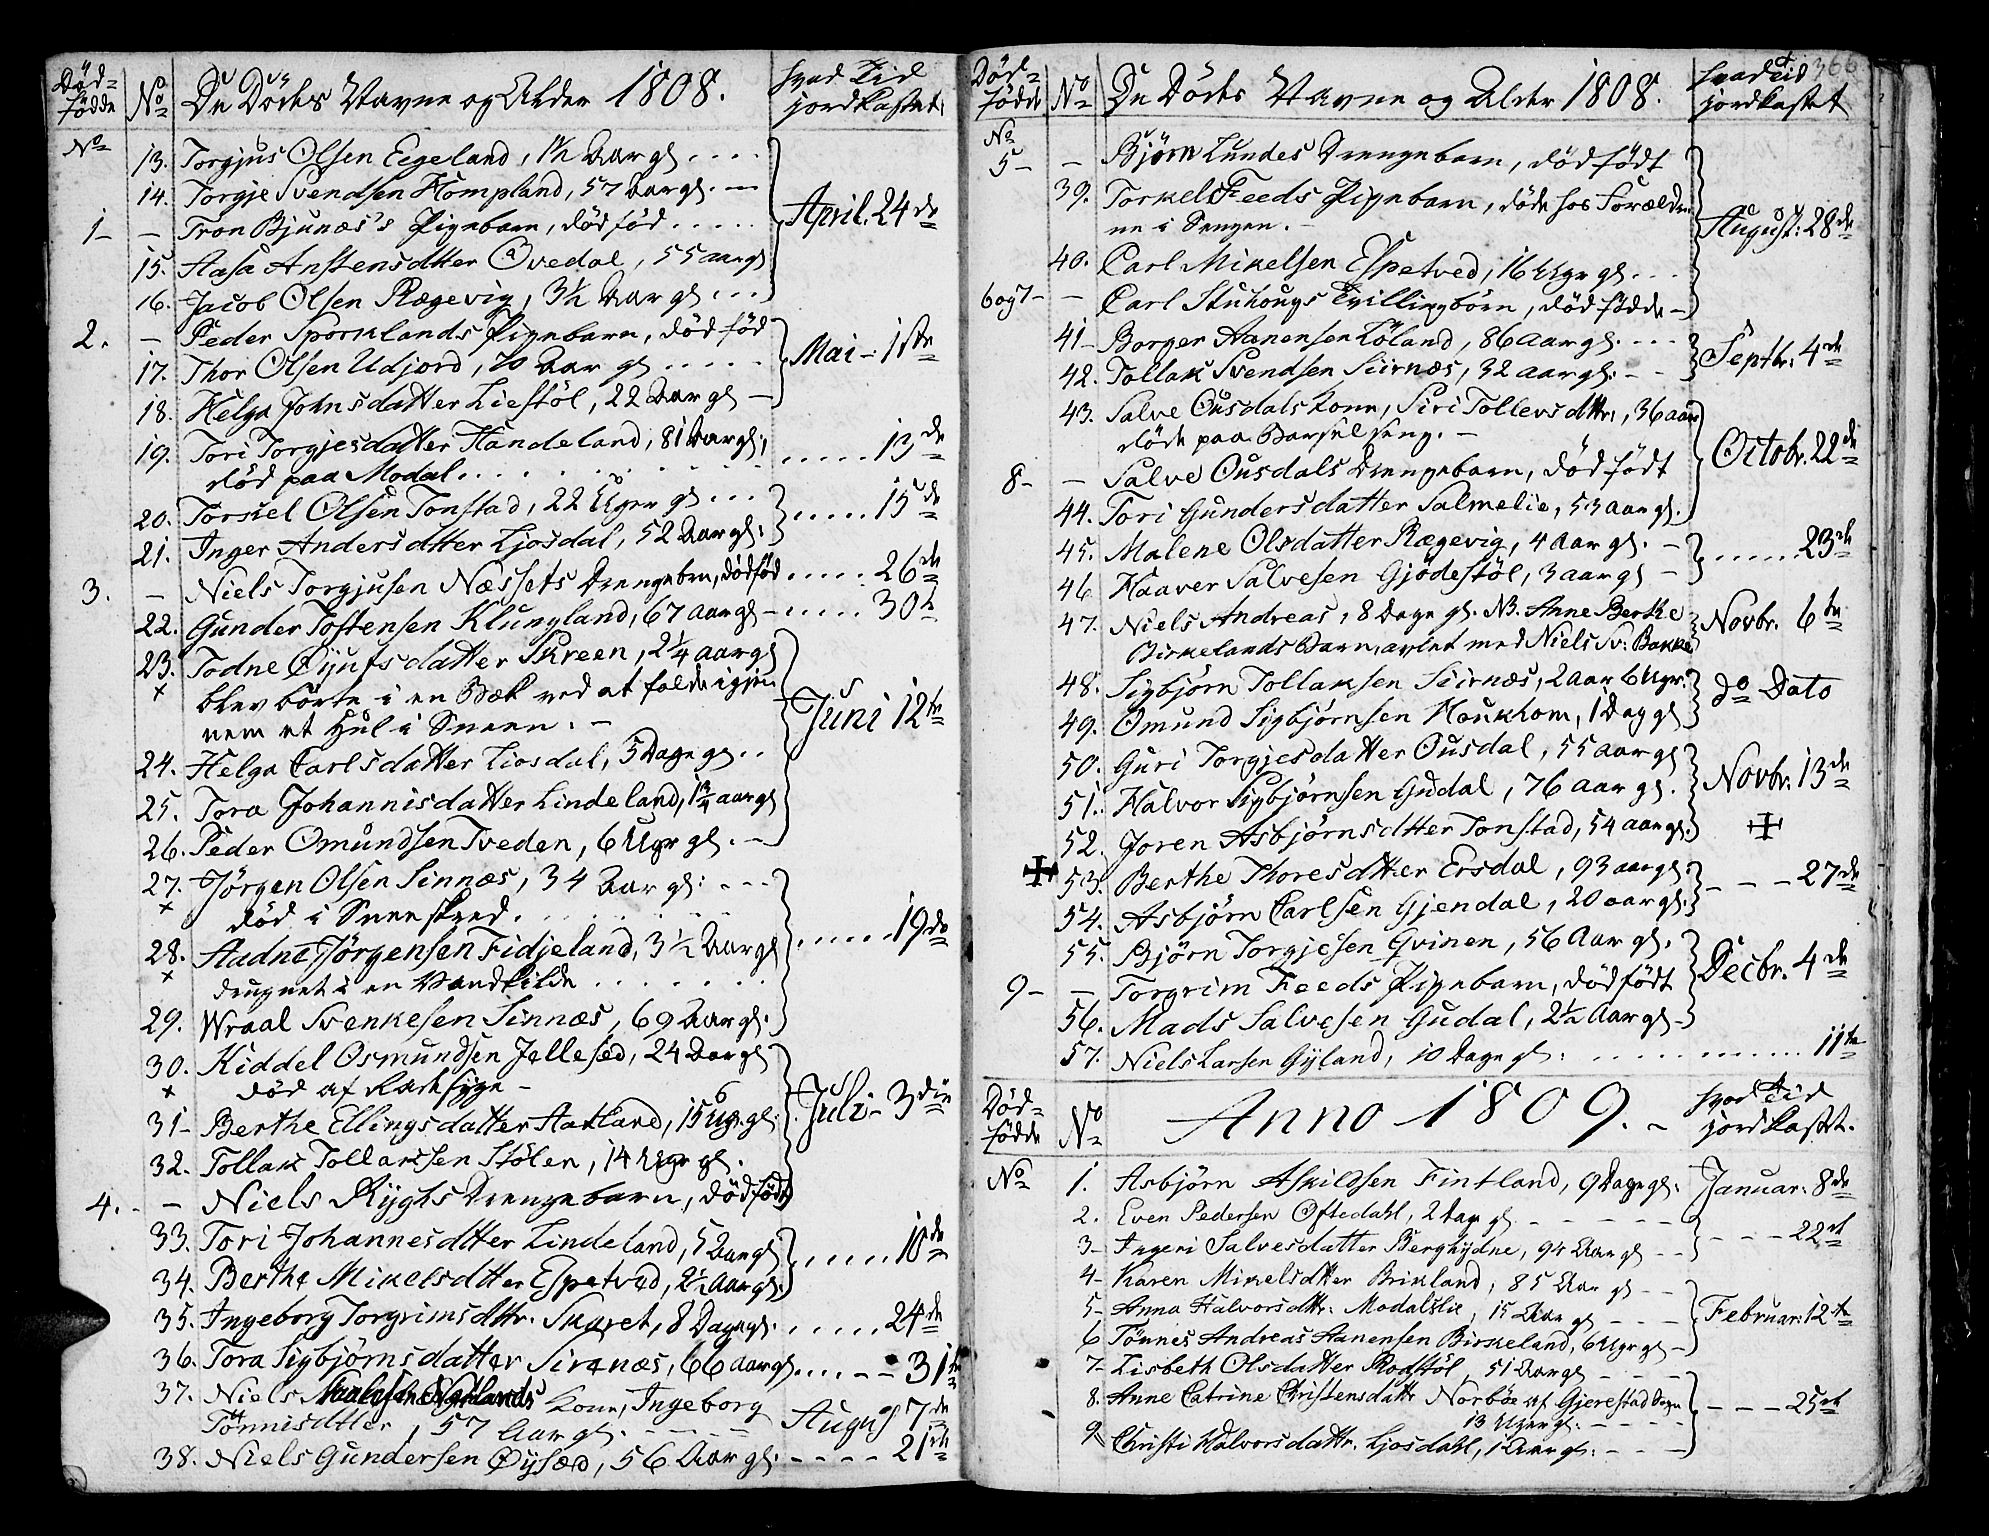 Død-
fødde
No
De Dödes Navne og Alder 1808.
hvad Tid
jordkastet
No
13. Torgjus Olsen Eegeland, 1½ Aar gl. . . .
14. Torgje Svendsen Hompland, 57 Aar gl. —
1 – – Tron Bjunæs's Pigebarn, död föd . . . . .
April. 24de
15. Aasa Anstensdtter Ovedal, 55 aar gl
16. Jacob Olsen Rægevig, 3½ Aar gl. . . .
2. – Peder Sporklands Pigebarn, död föd
17. Thor Olsen Udjord, 70 Aar gl . . . . .
Mai – 1ste
18. Helga Johnsdatter Liestöl, 22 Aar gl –
19. Tori Torgjesdatter Handeland, 81 Aar gl,
död paa Modal . . . . . . . . 13de
20. Torkiel Olsen Tonstad, 22 Uger gl . . .
. . . . . 15de
21. Inger Andersdtter Ljosdal, 52 Aar gl.
3. – Niels Torgjusen Næssets Drengebrn, dödföd . . . . . 26de
22. Gunder Tostensen Klungland, 67 aar gl – . . . . . 30te
23. Todne Öjufsdatter Skreen, 2¼ aar gl
x blev börte i en Bæk ved at falde igjen-
nem et Hul i Sneen. –
Juni 12te
24. Helga Carlsdatter Liosdal, 5 Dage gl . .
25. Tora Johannisdatter Lindeland, 1¾ aar gl
26. Peder Omundsen Tveden, 6 Ugr gl. –
27. Jörgen Olsen Sinnæs, 34 Aar gl: - - -
x död i Sneeskred. . . . . . .
28. Aadne Jörgensen Fidjeland, 3½ Aar gl
. . . . . 19de
x drugnet i en Vandkilde . . . . . . .
29. Wraal Svenkesen Sinnæs, 69 Aar gl.
30. Kiddel Osmundsen Jellesed, 24 Aar gl
x död af Radesyge –
Juli – 3die
31 – Berthe Ellingsdatter Aatland, 15 Ugr. gl.
32. Tollak Tollaksen Stölen, 14 Ugr gl.
4. – – Niels Ryghs Drengebarn, dödfödt
33. Tori Johannesdtter Lindeland, 5 Aar gl
. . . . . 10de
34. Berthe Mikelsdtter Espetved, 2½ Aar gl.
35. Ingeborg Torgrimsdttr. Skaret, 8 Dage gl. . . . . . 24de
36. Tora Sigbjörnsdatter Sirenæs, 66 aar gl. . . . - - 31te
37. Niels Kone, Ingeborg
Tönnisdtter, 57 Aar gl. - - - -
August 7de
38. Niels Gundersen Öysæd, 56 Aar gl. - - - - 21de
366
Död-
födde
No
De Dödes Navne og Alder 1808.
hvad Tid
jordkastet
No
5 – – Björn Lundes Drengebarn, död födt
39. Torkels Feeds Pigebarn, döde hos Forældre-
ne i Sengen. –
August: 28de
40. Carl Mikelsen Espetved, 16 Ugr gl. . . .
6 og 7 – – Carl Stuhougs Tvillingbörn, död födde –
41 – Borger Aanensen Löland, 86 aar gl. - - -
Septbr. 4de
42. Tollak Svendsen Siirnæs, 32 aar gl. - -
43. Salve Ousdals Kone, Siri Tollevsdttr, 36 aar
döde paa Barselseng. –
Octobr. 22de
8 – – Salve Ousdals Drengebarn, död födt
44. Tori Gundersdatter Salmelie, 53 aar gl.
45. Malene Olsdatter Rægevig, 4 aar gl. –
. . . . . 23de
46 Haaver Salvesen Gjödestöl, 3 aar gl –
47. Niels Andreas, 8 Dage gl. NB. Anne Berthe
Birkelands Barn, avlet med Niels Sv: Bakke
Novbr. 6te
48. Sigbjörn Tollaksen Siirnæs, 2 aar 6 Ugr.
do Dato
49. Omund Sigbjörnsen Houkhom, 1 Dag gl
50. Guri Torgjesdatter Ousdal, 55 aar gl
51. Halvor Sigbjörnsen Gudal, 76 aar gl.
Novbr. 13de
52. Joren Asbjörnsdtter Tonstad, 54 aar gl.
53. Berthe Thoresdtter Ersdal, 93 aar gl.
- - - 27de
54. Asbjörn Carlsen Gjendal, 20 aar gl.
55. Björn Torgjesen Gvinen, 56 Aar gl.
9 – – Torgrim Feeds Pigebarn, dödfödt
Decbr. 4de
56. Mads Salvesen Gudal, 2½ Aar gl –
57. Niels Larsen Gyland, 10 Dage gl. . . . . . . . . . . 11te
Död-
födde
No
Anno 1809. –
hvad Tid
jordkastet.
No
1. Asbjörn Askildsen Fintland, 9 Dage gl. Januar: 8de
2. Even Pedersen Oftedahl, 2 Dage gl - - - - -
- - - 22de
3 – Ingeri Salvesdatter Berghydne, 94 Aar gl - -
4 – Karen Mikelsdtter Brikland, 85 Aar gl - -
5 – Anna Halvorsdttr: Modalslie, 15 Aar gl - - -
Februar: 12te
6 Tönnes Andreas Aanensen Birkeland, 6 Ugr gl –
7 – Lisbeth Olsdatter Rodstöl, 51 Aar gl - - -
8. Anne Catrine Christensdattr Norböe af Gjerestad Sogn
13 Uger gl. - - - -
- - - 25de
9 Christi Halvorsdattr. Ljosdahl, 1 Aar gl. - - -